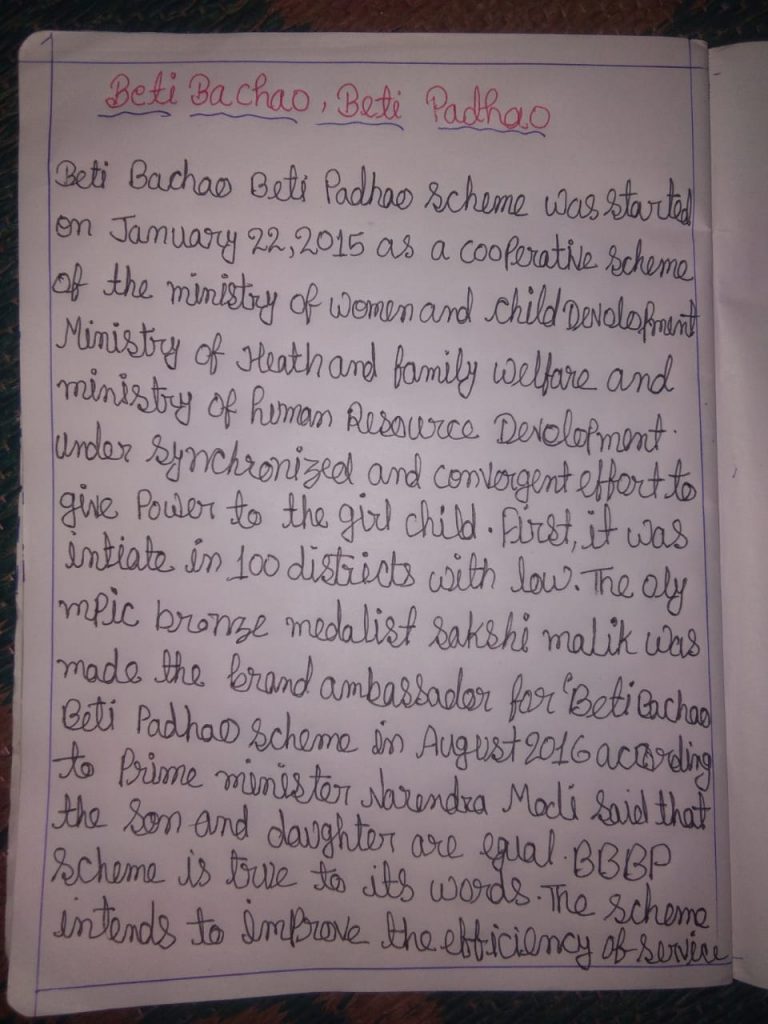 Beti Bachao, Beti Padhao
Beti Bachao Beti Padhao scheme was started
on January 22, 2015 as a cooperative scheme
of the ministry of women and child Development
Ministry of Heath and family welfare and
ministry of human Resource Development.
under synchronized and convergent effort to
give Power to the girl child. First, it was
intiate in 100 districts with low. The oly
mpic bronze medalist sakshi malik was
made the brand ambassador for "Beti Bachao
Beti Padhao scheme in August 2016 according
to Prime minister Narendra Modi said that
the son and daughter are equal. BBBP
scheme is true to its words. The scheme
intends to improve the efficiency of service